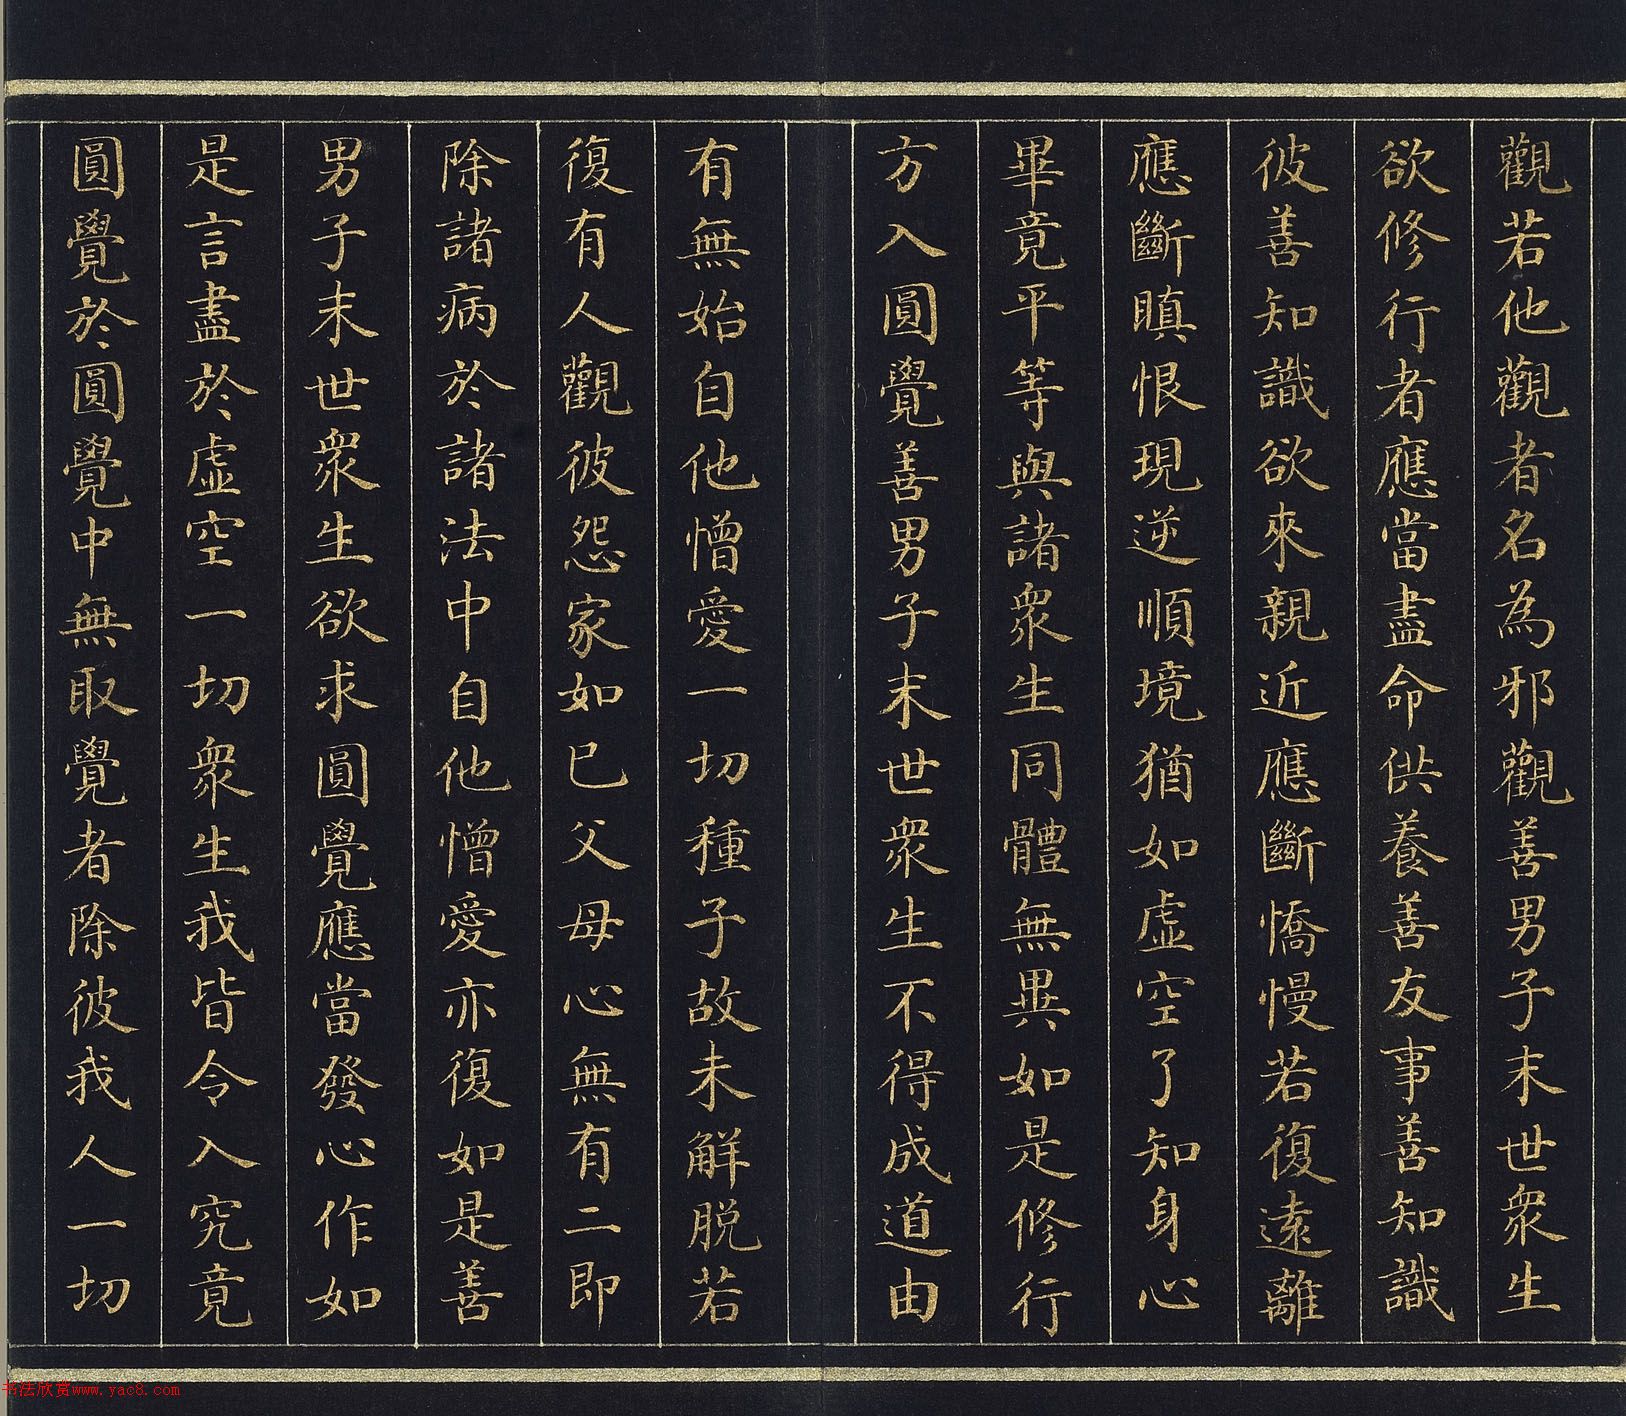 觀若他觀者名為邪觀善男子末世眾生
欲修行者應當盡命供養善友事善知識
彼善知識欲來親近應斷憍慢若復遠離
應斷瞋恨現逆順境猶如虛空了知身心
畢竟平等與諸眾生同體無異如是修行
方入圓覺善男子末世眾生不得成道由
有無始自他憎愛一切種子故未解脫若
復有人觀彼怨家如己父母心無有二即
除諸病於諸法中自他憎愛亦復如是善
男子末世眾生欲求圓覺應當發心作如
是言盡於虛空一切眾生我皆令入究竟
圓覺於圓覺中無取覺者除彼我人一切
书法欣赏www.yac8.com